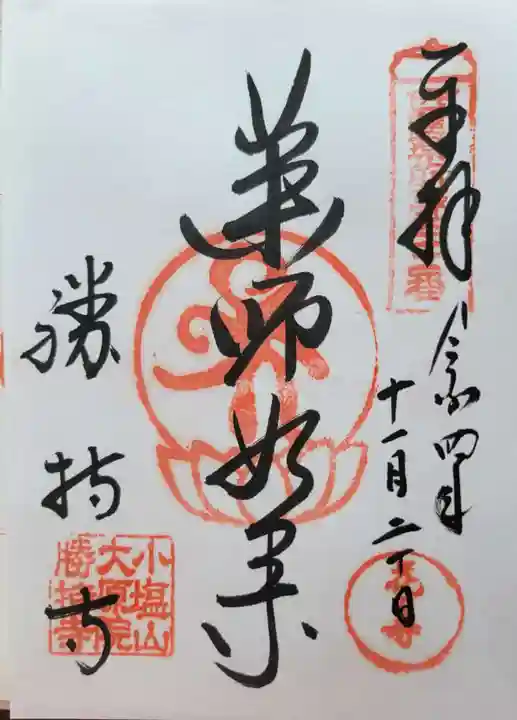 奉拝
令和四年
十一月二十日
薬師如来
勝持寺
花の寺
小塩山
大原院
勝持寺